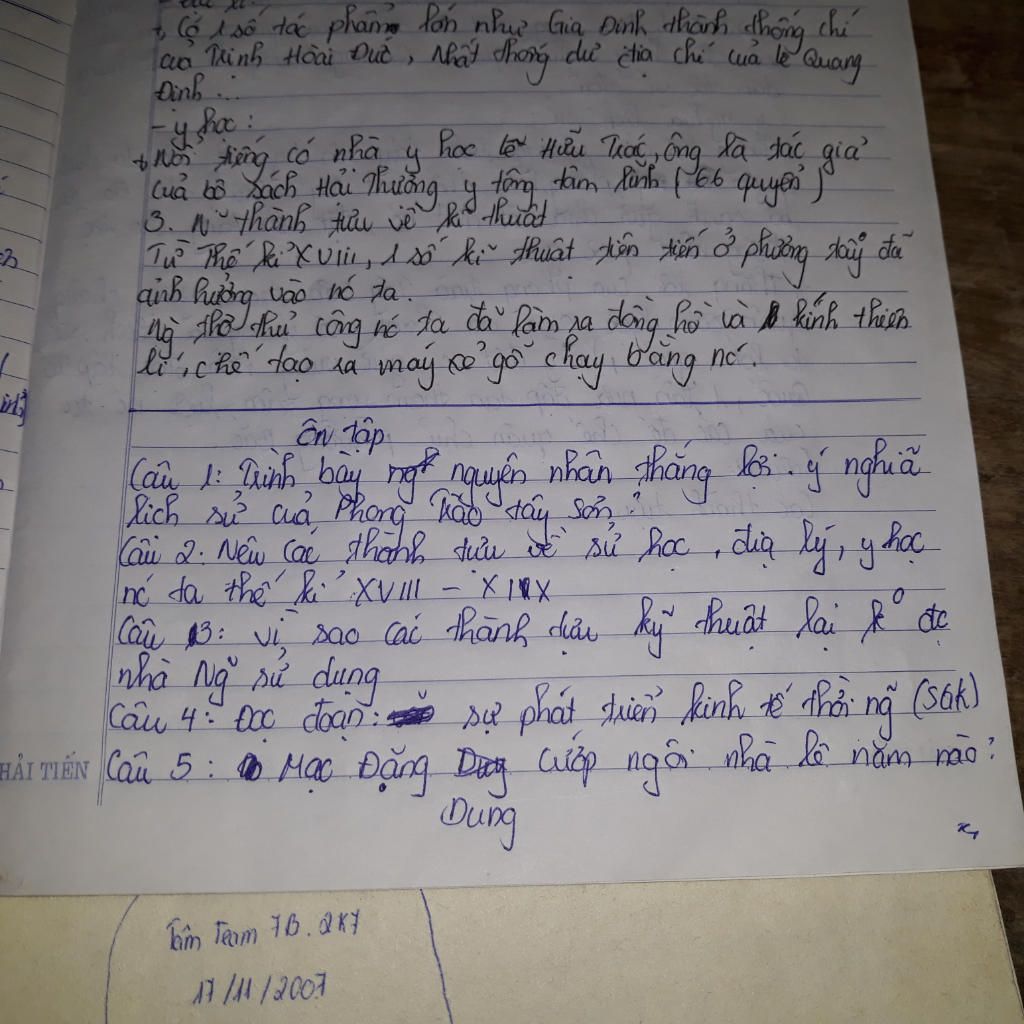 + Có 1 số tác phẩm lớn như Gia Định thành thống chí
của Trịnh Hoài Đức, Nhất thống dư địa chí của lê Quang
Định...
- y học:
+ Nổi tiếng có nhà y học lê Hữu Trác, ông là tác giả
của bộ sách Hải Thượng y tông tâm lĩnh (66 quyển)
3. N~ thành tựu về kĩ thuật
Từ Thế kỉ XVIII, 1 số kĩ thuật tiên tiến ở phương tây đã
ảnh hưởng vào nó ta.
Ng thợ thủ công nó ta đã làm ra đồng hồ và kính thiên
lí, chế tạo ra máy xẻ gỗ chạy bằng nó.
Ôn tập
Câu 1: Trình bày nguyên nhân thắng lợi. ý nghĩa
lịch sử của Phong Trào tây sơn?
Câu 2: Nêu các thành tựu về sử học, địa lý, y học
nó ta thế kỉ XVIII - XIX
Câu 3: vì sao các thành tựu kỹ thuật lại k0 đc
nhà Ng~ sử dụng
Câu 4: Đọc đoạn: sự phát triển kinh tế thời ng~ (SGK)
Câu 5: Mạc Đặng Cướp ngôi nhà lê năm nào?
Dung
HẢI TIẾN
Tâm Team 7B. 2K7
17/11/2007